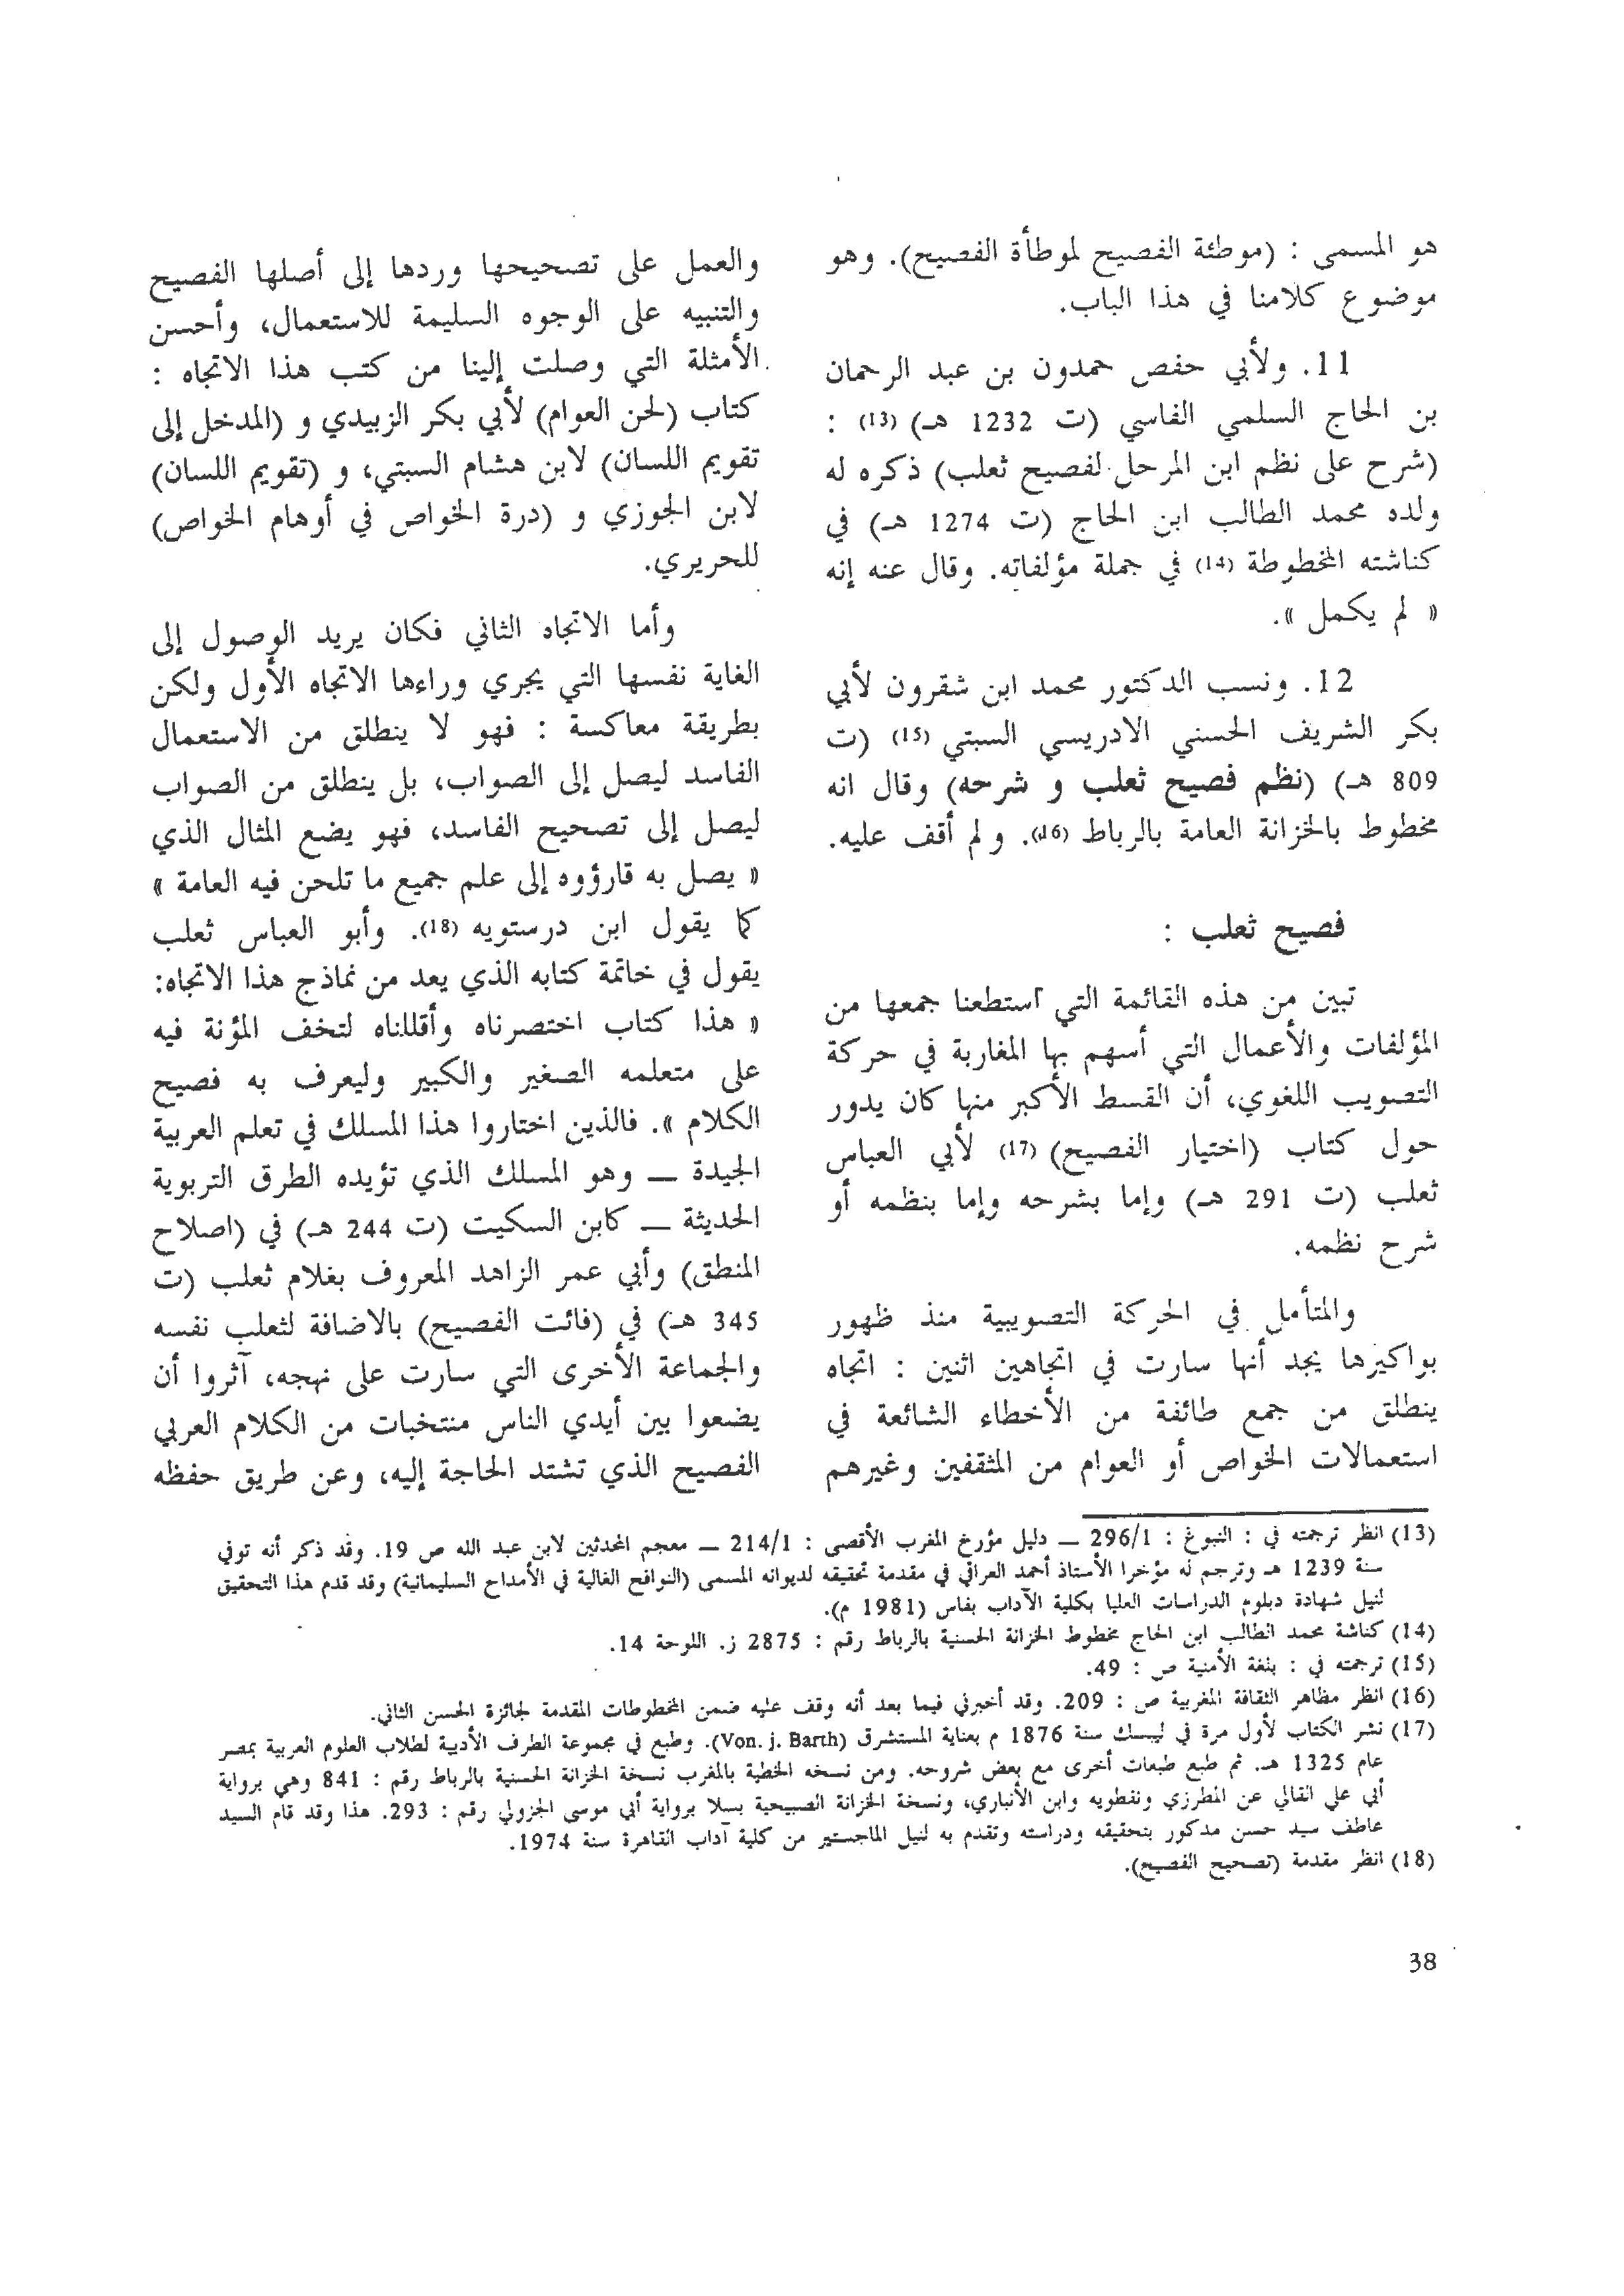 هو المسمى : (موطئة الفصيح لموطأة الفصيح). وهو
موضوع كلامنا في هذا الباب.
11. ولأبي حفص حمدون بن عبد الرحمان
بن الحاج السلمي الفاسي (ت 1232 هـ) (13) :
(شرح على نظم ابن المرحل لفصيح ثعلب) ذكره له
ولده محمد الطالب ابن الحاج (ت 1274 هـ) في
كناشته المخطوطة (14) في جملة مؤلفاته. وقال عنه إنه
« لم يكمل ».
12. ونسب الدكتور محمد ابن شقرون لأبي
بكر الشريف الحسني الادريسي السبتي (15) (ت
809 هـ) (نظم فصيح ثعلب و شرحه) وقال انه
مخطوط بالخزانة العامة بالرباط (16). و لم أقف عليه.
فصيح ثعلب :
تبين من هذه القائمة التي استطعنا جمعها من
المؤلفات والأعمال التي أسهم بها المغاربة في حركة
التصويب اللغوي، أن القسط الأكبر منها كان يدور
حول كتاب (اختيار الفصيح) (17) لأبي العباس
ثعلب (ت 291 هـ) وإما بشرحه وإما بنظمه أو
شرح نظمه.
والمتأمل في الحركة التصويبية منذ ظهور
بواكيرها يجد أنها سارت في اتجاهين اثنين : اتجاه
ينطلق من جمع طائفة من الأخطاء الشائعة في
استعمالات الخواص أو العوام من المثقفين وغيرهم
والعمل على تصحيحها وردها إلى أصلها الفصيح
والتنبيه على الوجوه السليمة للاستعمال، وأحسن
الأمثلة التي وصلت إلينا من كتب هذا الاتجاه :
كتاب (لحن العوام) لأبي بكر الزبيدي و (المدخل إلى
تقويم اللسان) لابن هشام السبتي، و (تقويم اللسان)
لابن الجوزي و (درة الخواص في أوهام الخواص)
للحريري.
وأما الاتجاه الثاني فكان يريد الوصول إلى
الغاية نفسها التي يجري وراءها الاتجاه الأول ولكن
بطريقة معاكسة : فهو لا ينطلق من الاستعمال
الفاسد ليصل إلى الصواب، بل ينطلق من الصواب
ليصل إلى تصحيح الفاسد، فهو يضع المثال الذي
« يصل به قارؤوه إلى علم جميع ما تلحن فيه العامة »
كما يقول ابن درستويه (18). وأبو العباس ثعلب
يقول في خاتمة كتابه الذي يعد من نماذج هذا الاتجاه:
« هذا كتاب اختصرناه وأقللناه لتخف المؤنة فيه
على متعلمه الصغير والكبير وليعرف به فصيح
الكلام ». فالذين اختاروا هذا المسلك في تعلم العربية
الجيدة — وهو المسلك الذي تؤيده الطرق التربوية
الحديثة — كابن السكيت (ت 244 هـ) في (اصلاح
المنطق) وأبي عمر الزاهد المعروف بغلام ثعلب (ت
345 هـ) في (فائت الفصيح) بالاضافة لثعلب نفسه
والجماعة الأخرى التي سارت على نهجه، آثروا أن
يضعوا بين أيدي الناس منتخبات من الكلام العربي
الفصيح الذي تشتد الحاجة إليه، وعن طريق حفظه
(13) انظر ترجمته في : النبوغ : 296/1 — دليل مؤرخ المغرب الأقصى : 214/1 — معجم المحدثين لابن عبد الله ص 19. وقد ذكر أنه توفي
سنة 1239 هـ وترجم له مؤخرا الأستاذ أحمد العراقي في مقدمة تحقيقه لديوانه المسمى (النوافح الغالية في الأمداح السليمانية) وقد قدم هذا التحقيق
لنيل شهادة دبلوم الدراسات العليا بكلية الآداب بفاس (1981 م).
(14) كناشة محمد الطالب ابن الحاج مخطوط الخزانة الحسنية بالرباط رقم : 2875 ز. اللوحة 14.
(15) ترجمته في : بلغة الأمنية ص : 49.
(16) انظر مظاهر الثقافة المغربية ص : 209. وقد أخبرني فيما بعد أنه وقف عليه ضمن المخطوطات المقدمة لجائزة الحسن الثاني.
(17) نشر الكتاب لأول مرة في ليبسك سنة 1876 م بعناية المستشرق (Von. j. Barth). وطبع في مجموعة الطرف الأدبية لطلاب العلوم العربية بمصر
عام 1325 هـ. ثم طبع طبعات أخرى مع بعض شروحه. ومن نسخه الخطية بالمغرب نسخة الخزانة الحسنية بالرباط رقم : 841 وهي برواية
أبي علي القالي عن المطرزي ونفطويه وابن الأنباري، ونسخة الخزانة الصبيحية بسلا برواية أبي موسى الجزولي رقم : 293. هذا وقد قام السيد
عاطف سيد حسن مدكور بتحقيقه ودراسته وتقدم به لنيل الماجستير من كلية آداب القاهرة سنة 1974.
(18) انظر مقدمة (تصحيح الفصيح).
38